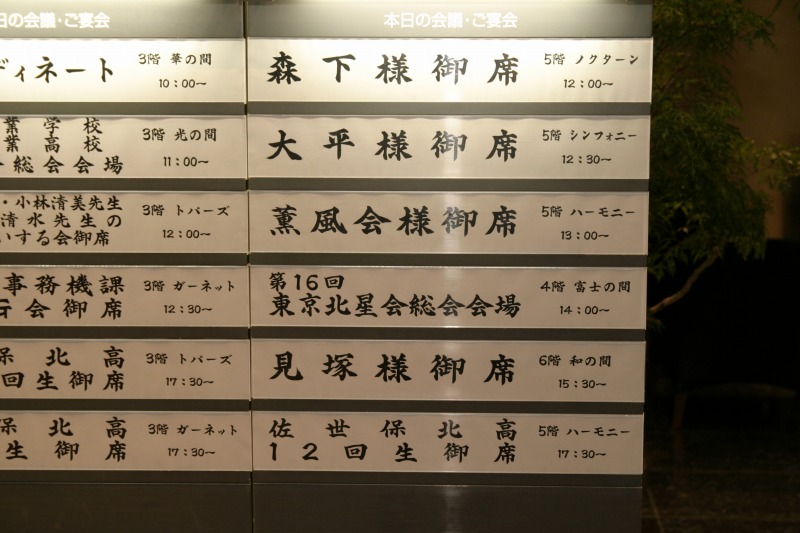 日の会議・ご宴会
ディネート
3階 華の間
10：00〜
業学校
業高校
総会会場
3階 光の間
11：00〜
・小林清美先生
清水先生の
いする会御席
3階 トパーズ
12：00〜
事務機課
会御席
3階 ガーネット
12：30〜
保北高
回生御席
3階 トパーズ
17：30〜
保北高
生御席
3階 ガーネット
17：30〜
本日の会議・ご宴会
森下様御席
5階 ノクターン
12：00〜
大平様御席
5階 シンフォニー
12：30〜
薫風会様御席
5階 ハーモニー
13：00〜
第16回
東京北星会総会会場
4階 富士の間
14：00〜
見塚様御席
6階 和の間
15：30〜
佐世保北高
12回生御席
5階 ハーモニー
17：30〜